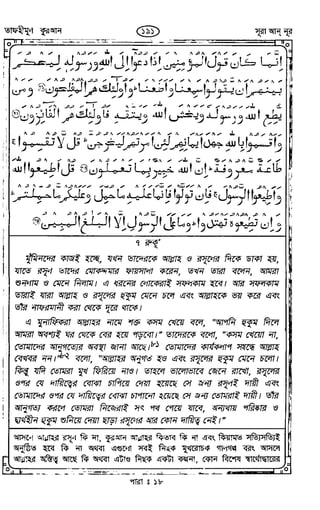 তাফহীমুল কুরআন
১৯১
সূরা আন্ নূর
إِنَّمَا كَانَ قَوْلَ الْمُؤْمِنِينَ إِذَا دُعُوا إِلَى اللَّهِ وَرَسُولِهِ لِيَحْكُمَ
بَيْنَهُمْ أَنْ يَقُولُوا سَمِعْنَا وَأَطَعْنَا وَأُولَئِكَ هُمُ الْمُفْلِحُونَ وَمَنْ
يُطِعِ اللَّهَ وَرَسُولَهُ وَيَخْشَ اللَّهَ وَيَتَّقْهِ فَأُولَئِكَ هُمُ الْفَائِزُونَ
وَأَقْسَمُوا بِاللَّهِ جَهْدَ أَيْمَانِهِمْ لَئِنْ أَمَرْتَهُمْ لَيَخْرُجُنَّ قُلْ لَا تُقْسِمُوا
طَاعَةٌ مَعْرُوفَةٌ إِنَّ اللَّهَ خَبِيرٌ بِمَا تَعْمَلُونَ قُلْ أَطِيعُوا اللَّهَ
وَأَطِيعُوا الرَّسُولَ فَإِنْ تَوَلَّوْا فَإِنَّمَا عَلَيْهِ مَا حُمِّلَ وَعَلَيْكُمْ مَا حُمِّلْتُمْ
وَإِنْ تُطِيعُوهُ تَهْتَدُوا وَمَا عَلَى الرَّسُولِ إِلَّا الْبَلَاغُ الْمُبِينُ
৭ রুকূ'
মু'মিনদের কাজই হচ্ছে, যখন তাদেরকে আল্লাহ ও রসূলের দিকে ডাকা হয়,
যাতে রসূল তাদের মোকদ্দমার ফায়সালা করেন, তখন তারা বলেন, আমরা
শুনলাম ও মেনে নিলাম। এ ধরনের লোকেরাই সফলকাম হবে। আর সফলকাম
তারাই যারা আল্লাহ ও রসূলের হুকুম মেনে চলে এবং আল্লাহকে ভয় করে এবং
তাঁর নাফরমানী করা থেকে দূরে থাকে।
এ মুনাফিকরা আল্লাহর নামে শক্ত কসম খেয়ে বলে, "আপনি হুকুম দিলে
আমরা অবশ্যই ঘর থেকে বের হয়ে পড়বো।" তাদেরকে বলো, "কসম খেয়ো না,
তোমাদের আনুগত্যের অবস্থা জানা আছে। তোমাদের কার্যকলাপ সম্বন্ধে আল্লাহ
বেখবর নন।" বলো, "আল্লাহর অনুগত হও এবং রসূলের হুকুম মেনে চলো।
কিন্তু যদি তোমরা মুখ ফিরিয়ে নাও। তাহলে ভালোভাবে জেনে রাখো, রসূলের
ওপর যে দায়িত্বের বোঝা চাপিয়ে দেয়া হয়েছে সে জন্য রসূলই দায়ী এবং
তোমাদের ওপর যে দায়িত্বের বোঝা চাপানো হয়েছে সে জন্য তোমরাই দায়ী। তাঁর
আনুগত্য করলে তোমরা নিজেরাই সৎ পথ পেয়ে যাবে, অন্যথায় পরিষ্কার ও
দ্ব্যর্থহীন হুকুম শুনিয়ে দেয়া ছাড়া রসূলের আর কোন দায়িত্ব নেই।"
আসলে আল্লাহর রসূল কি না, কুরআন আল্লাহর কিতাব কি না এবং কিয়ামত সত্যিসত্যিই
অনুষ্ঠিত হবে কি না অথবা এগুলো সবই নিছক মুখরোচক গালগল্প বরং আসলে
আল্লাহর অস্তিত্ব আছে কি অথবা এটাও নিছক একটা কল্পনা, কোন বিশেষ স্বার্থোদ্ধারের
পারা : ১৮